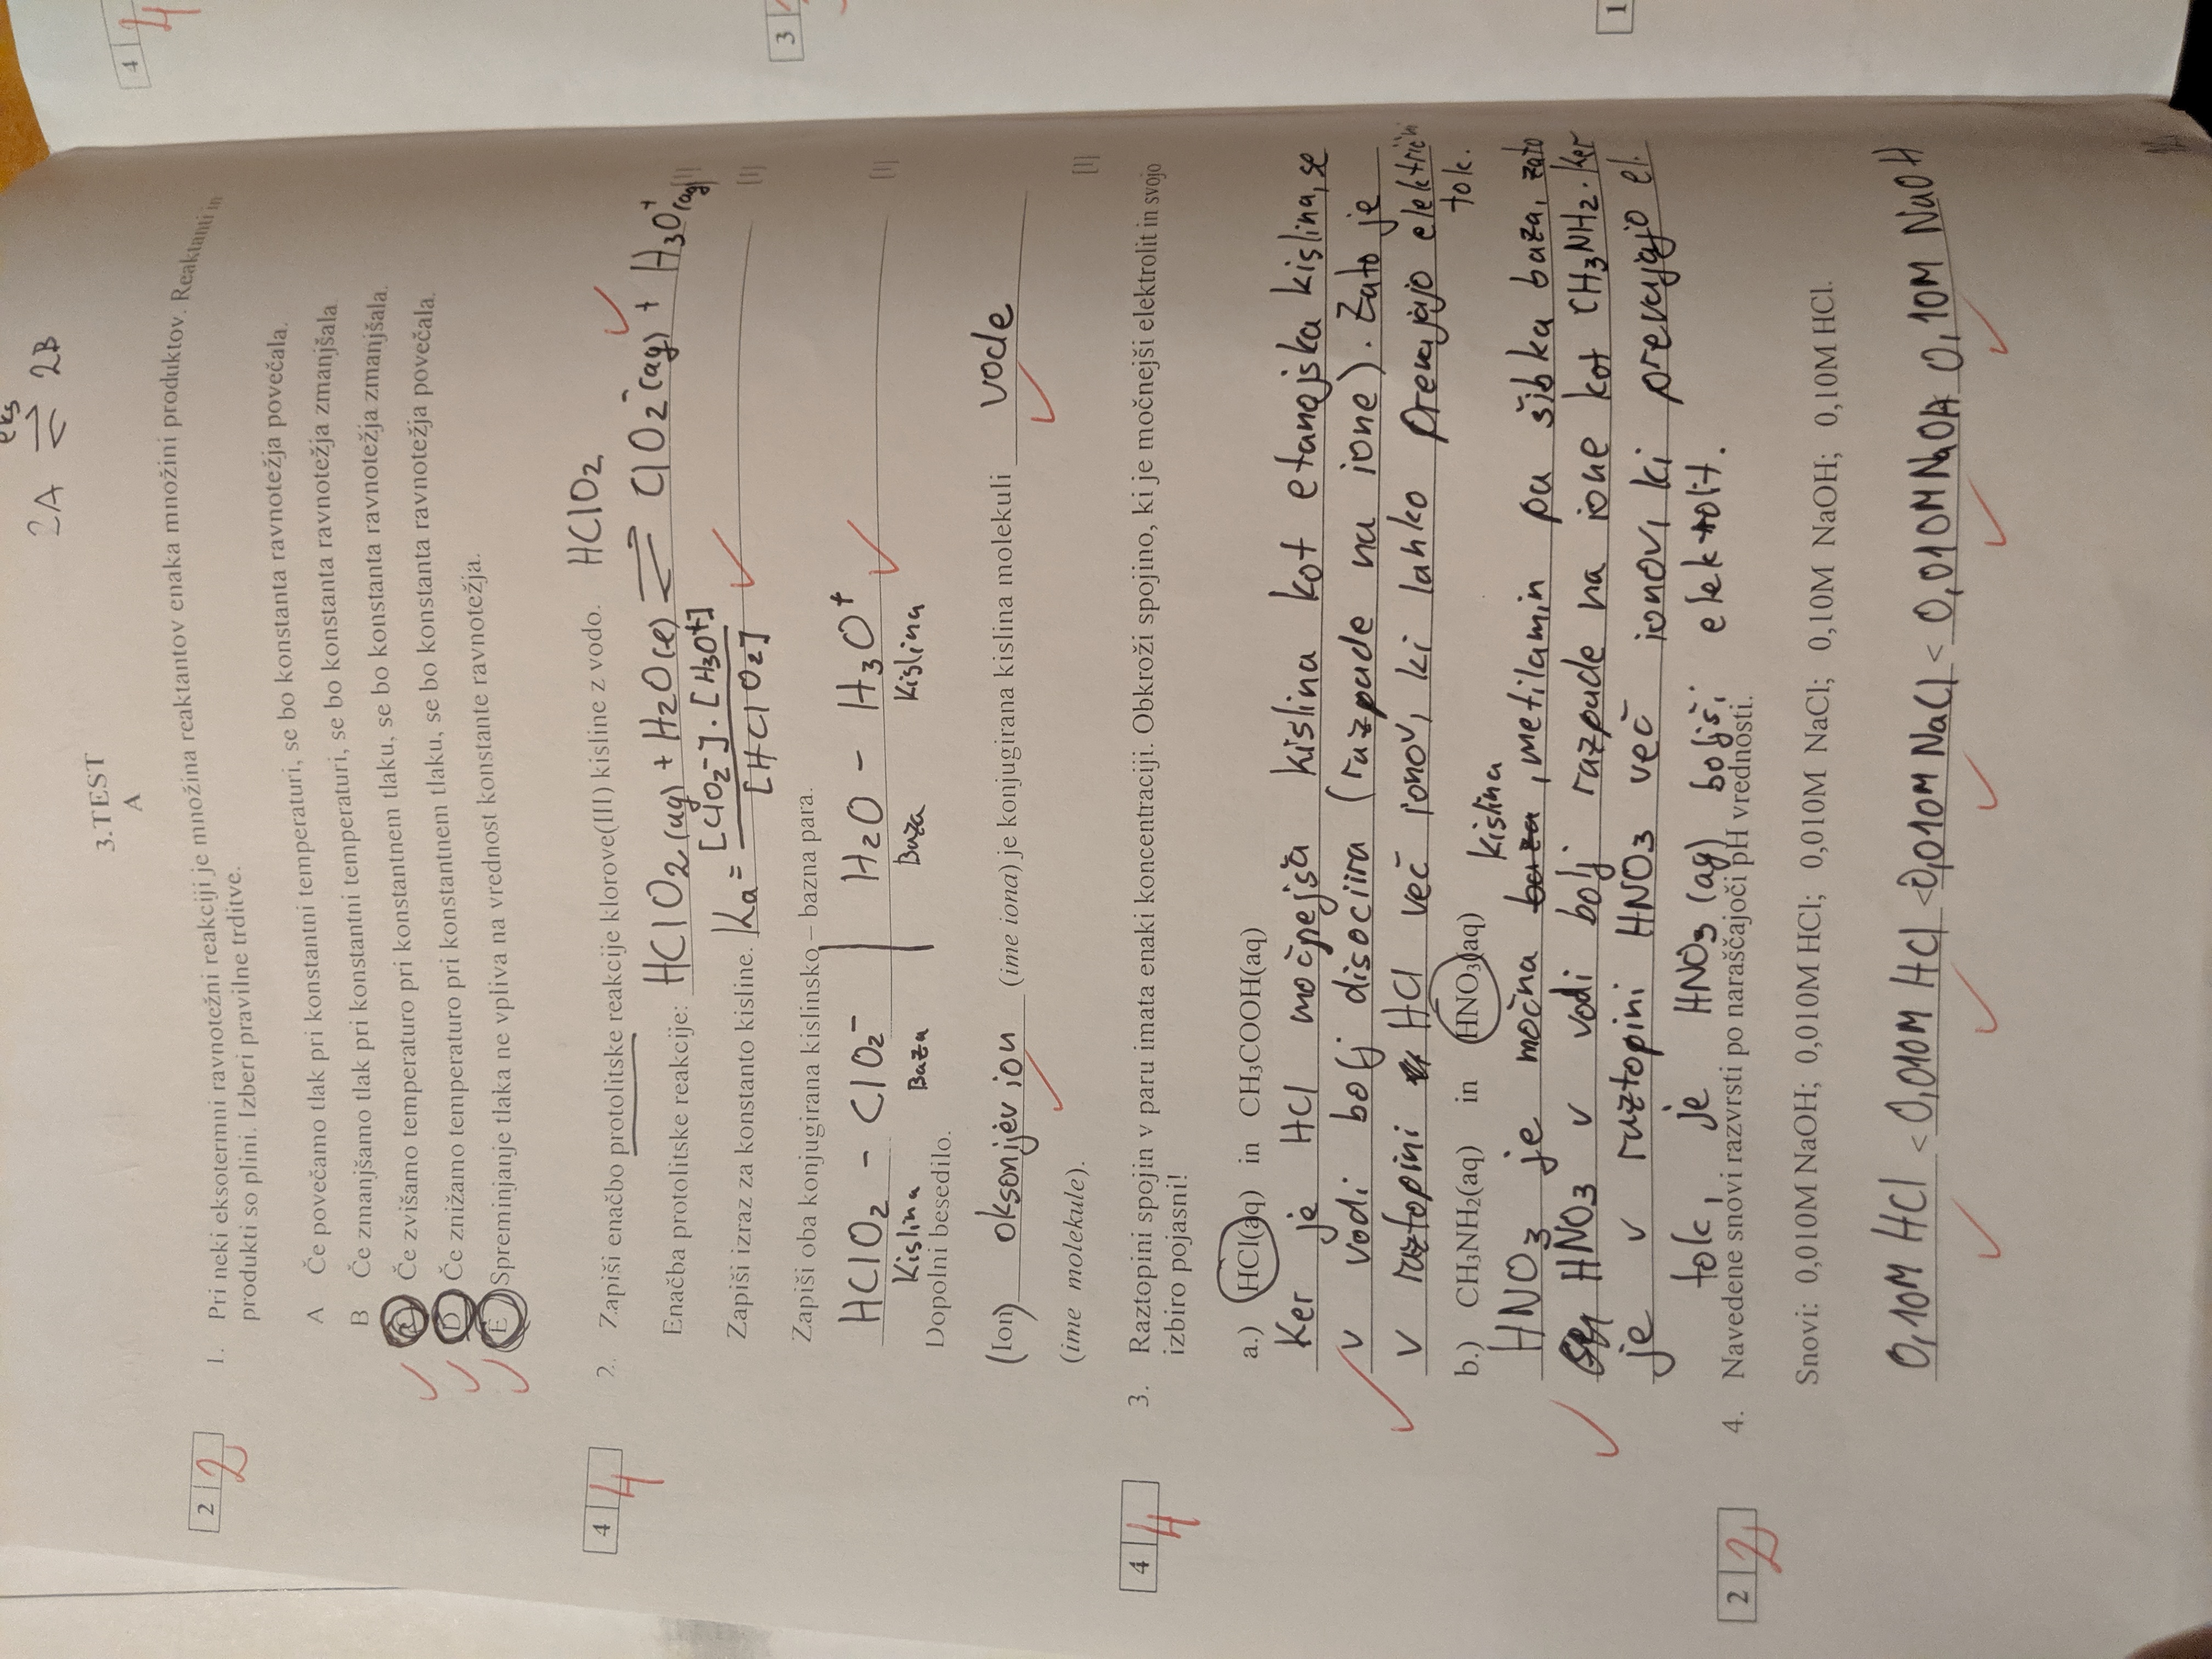 eks
2A ⇌ 2B
3.TEST
A
2 2
1. Pri neki eksotermni ravnotežni reakciji je množina reaktantov enaka množini produktov. Reaktanti in
produkti so plini. Izberi pravilne trditve.
A Če povečamo tlak pri konstantni temperaturi, se bo konstanta ravnotežja povečala.
B Če zmanjšamo tlak pri konstantni temperaturi, se bo konstanta ravnotežja zmanjšala.
C Če zvišamo temperaturo pri konstantnem tlaku, se bo konstanta ravnotežja zmanjšala.
D Če znižamo temperaturo pri konstantnem tlaku, se bo konstanta ravnotežja povečala.
E Spreminjanje tlaka ne vpliva na vrednost konstante ravnotežja.
4 4
2. Zapiši enačbo protolitske reakcije klorove(III) kisline z vodo. HClO₂
Enačba protolitske reakcije: HClO₂(aq) + H₂O(l) ⇌ ClO₂⁻(aq) + H₃O⁺(aq)
Zapiši izraz za konstanto kisline. Ka = [ClO₂⁻]·[H₃O⁺] / [HClO₂] [1]
Zapiši oba konjugirana kislinsko – bazna para.
HClO₂ – ClO₂⁻ | H₂O – H₃O⁺ [1]
Kislina Baza Baza Kislina
Dopolni besedilo.
(Ion) oksonijev ion (ime iona) je konjugirana kislina molekuli vode
(ime molekule). [1]
4 4
3. Raztopini spojin v paru imata enaki koncentraciji. Obkroži spojino, ki je močnejši elektrolit in svojo
izbiro pojasni!
a.) HCl(aq) in CH₃COOH(aq)
Ker je HCl močnejša kislina kot etanojska kislina, se
v vodi bolj disociira (razpade na ione). Zato je
v raztopini HCl več ionov, ki lahko prevajajo električni
tok.
b.) CH₃NH₂(aq) in HNO₃(aq)
kislina
HNO₃ je močna baza, metilamin pa šibka baza, zato
HNO₃ v vodi bolj razpade na ione kot CH₃NH₂. Ker
je v raztopini HNO₃ več ionov, ki prevajajo el.
tok, je HNO₃ (aq) boljši elektrolit.
2 2
4. Navedene snovi razvrsti po naraščajoči pH vrednosti.
Snovi: 0,010M NaOH; 0,010M HCl; 0,010M NaCl; 0,10M NaOH; 0,10M HCl.
0,10M HCl < 0,010M HCl < 0,010M NaCl < 0,010M NaOH 0,10M NaOH
4 4
3
1